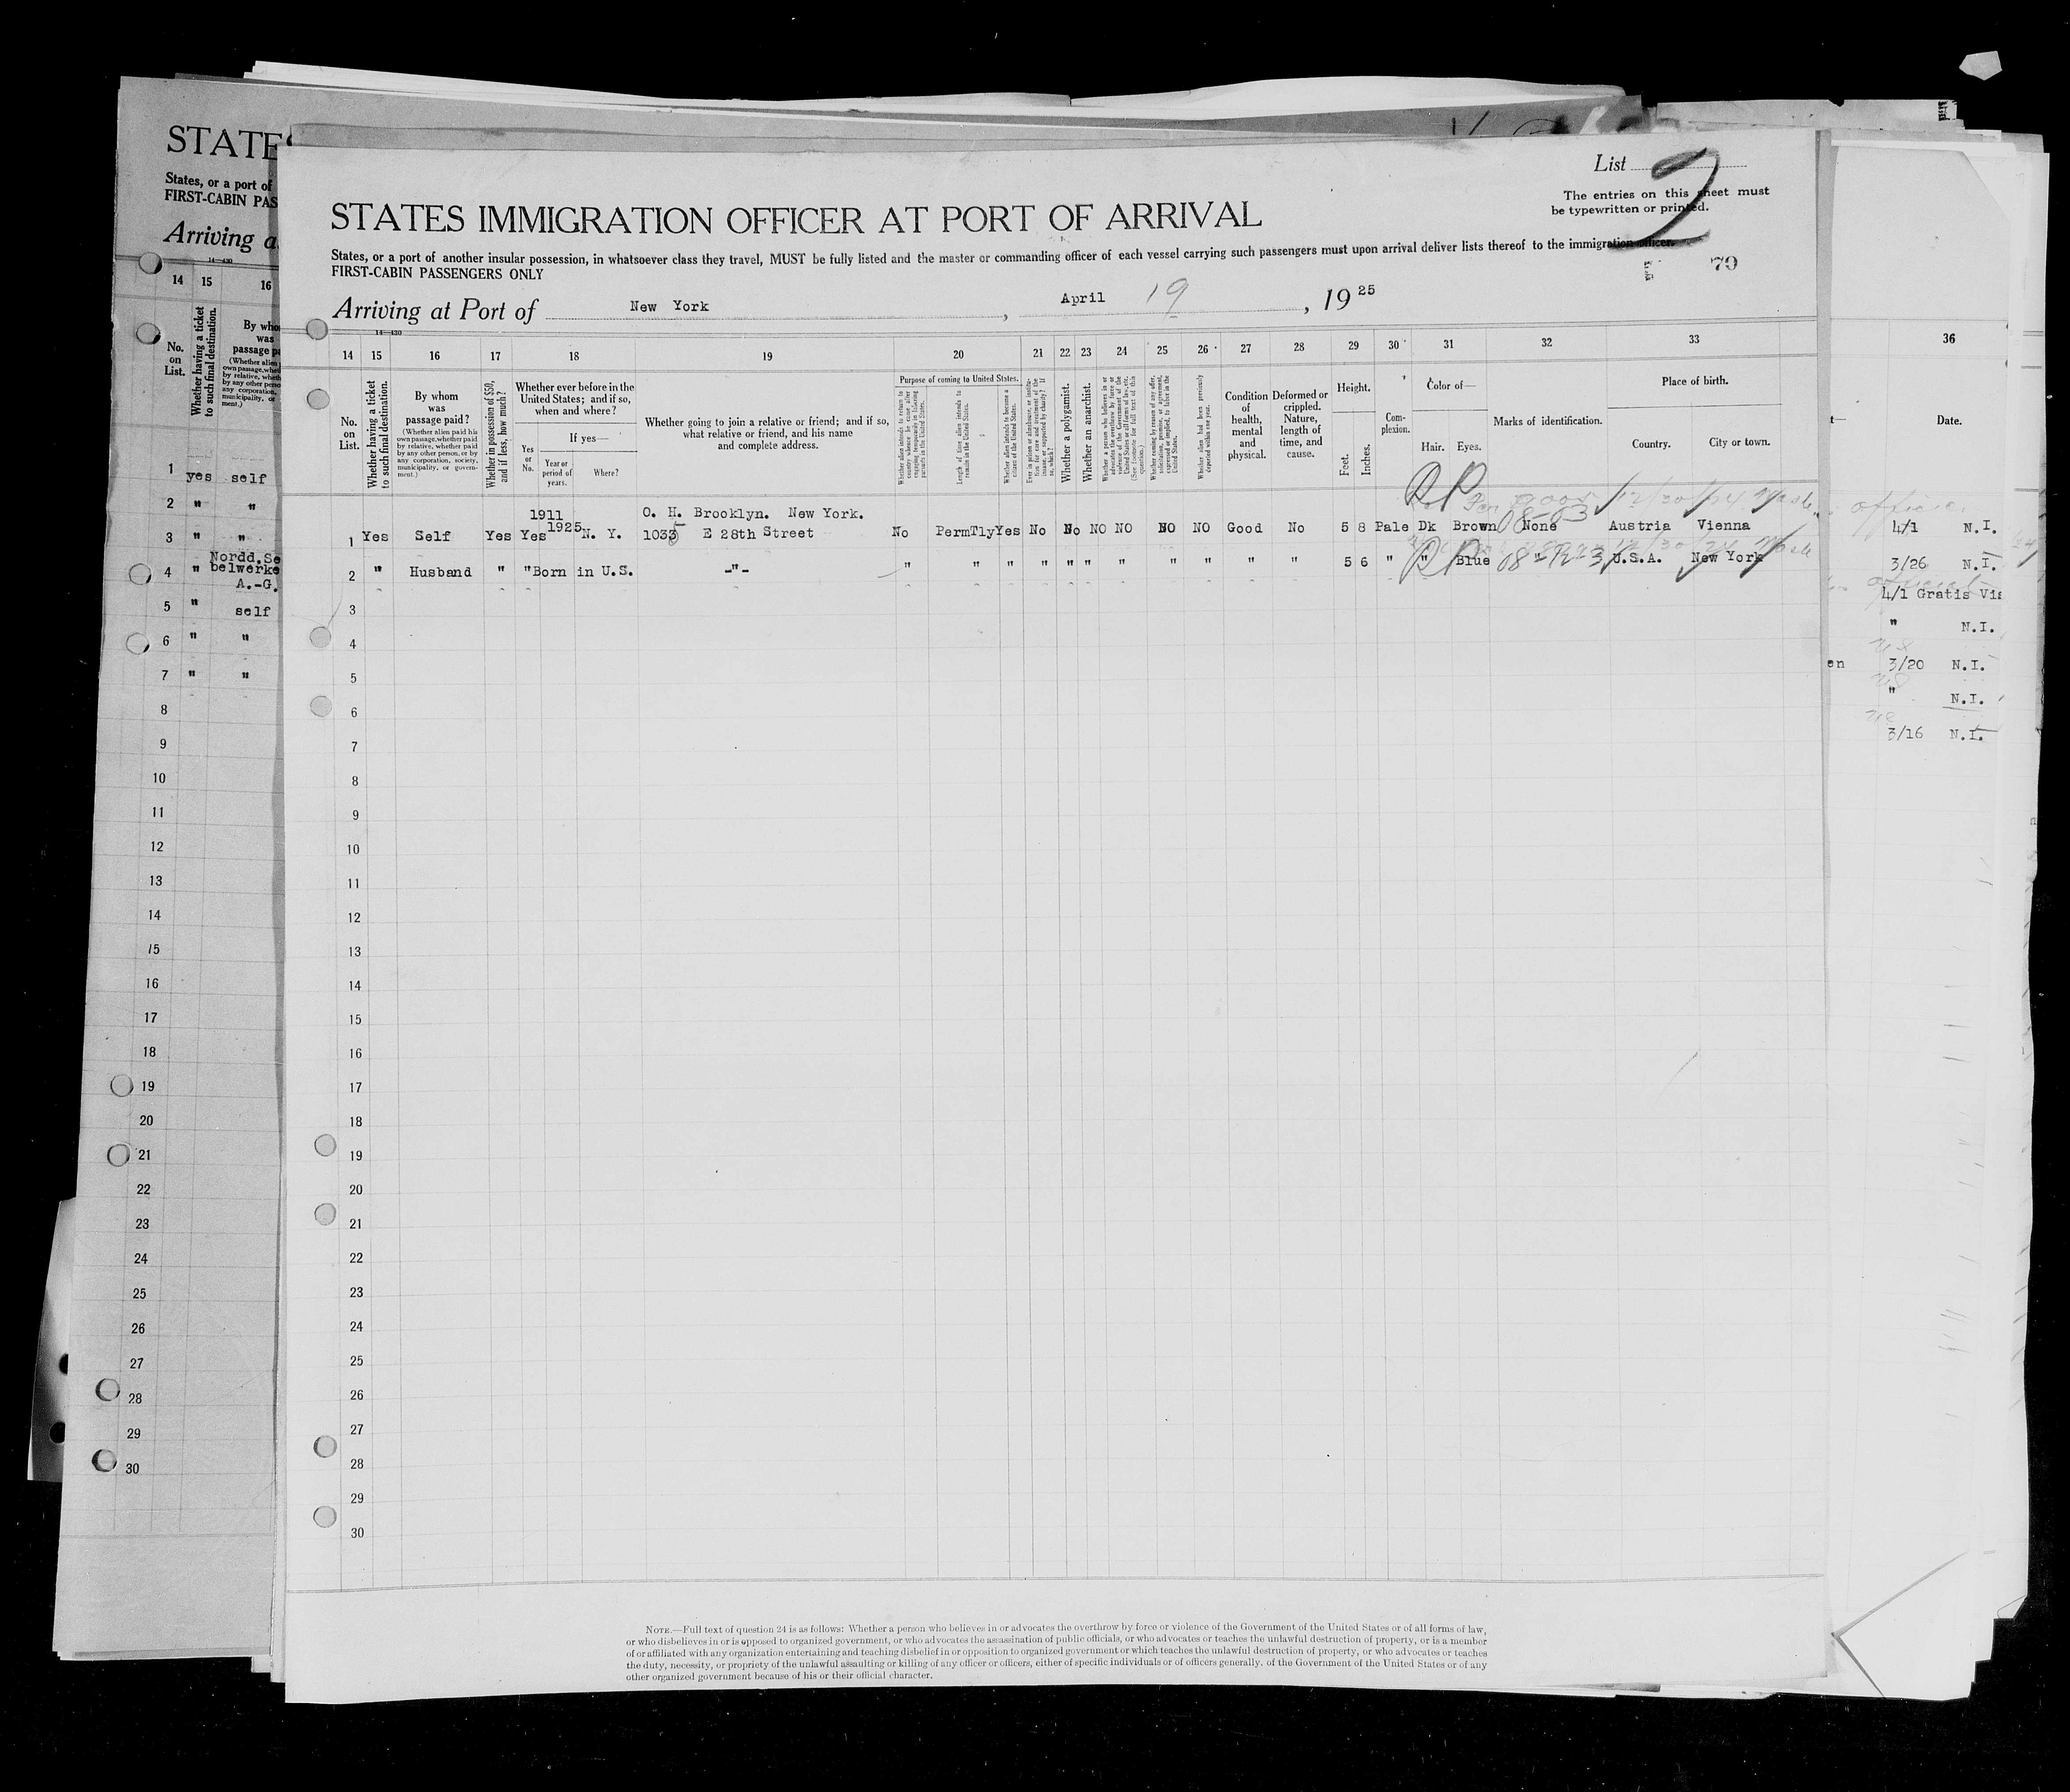 List 2
The entries on this sheet must
be typewritten or printed.
STATES IMMIGRATION OFFICER AT PORT OF ARRIVAL
States, or a port of another insular possession, in whatsoever class they travel, MUST be fully listed and the master or commanding officer of each vessel carrying such passengers must upon arrival deliver lists thereof to the immigration officer.
FIRST-CABIN PASSENGERS ONLY
79
Arriving at Port of New York, April 19, 1925
14—430
14 15 16 17 18 19 20 21 22 23 24 25 26 27 28 29 30 31 32 33
No. on List.
Whether having a ticket to such final destination.
By whom was passage paid?
(Whether alien paid his own passage, whether paid by relative, whether paid by any other person, or by any corporation, society, municipality, or government.)
Whether in possession of $50, and if less, how much?
Whether ever before in the United States; and if so, when and where?
Yes or No.
If yes—
Year or period of years.
Where?
Whether going to join a relative or friend; and if so, what relative or friend, and his name and complete address.
Purpose of coming to United States.
Whether alien intends to return to country whence he came after engaging temporarily in laboring pursuits in the United States.
Length of time alien intends to remain in the United States.
Whether alien intends to become a citizen of the United States.
Ever in prison or almshouse, or institution for care and treatment of the insane, or supported by charity? If so, which?
Whether a polygamist.
Whether an anarchist.
Whether coming by reason of any offer, solicitation, promise, or agreement, expressed or implied, to labor in the United States.
Whether alien had been previously deported within one year.
Condition of health, mental and physical.
Deformed or crippled. Nature, length of time, and cause.
Height.
Feet. Inches.
Complexion.
Color of—
Hair. Eyes.
Marks of identification.
Place of birth.
Country. City or town.
1 Yes Self Yes Yes 1911 1925 N. Y. O. H. Brooklyn. New York. 1035 E 28th Street No PermTly Yes No No NO NO NO NO Good No 5 8 Pale Dk Brown None Austria Vienna
2 " Husband " " Born in U.S. -"- " " " " " " " " " " " 5 6 " " Blue " U.S.A. New York
3
4
5
6
7
8
9
10
11
12
13
14
15
16
17
18
19
20
21
22
23
24
25
26
27
28
29
30
NOTE.—Full text of question 24 is as follows: Whether a person who believes in or advocates the overthrow by force or violence of the Government of the United States or of all forms of law,
or who disbelieves in or is opposed to organized government, or who advocates the assassination of public officials, or who advocates or teaches the unlawful destruction of property, or is a member
of or affiliated with any organization entertaining and teaching disbelief in or opposition to organized government or which teaches the unlawful destruction of property, or who advocates or teaches
the duty, necessity, or propriety of the unlawful assaulting or killing of any officer or officers, either of specific individuals or of officers generally, of the Government of the United States or of any
other organized government because of his or their official character.
STATES
States, or a port of
FIRST-CABIN PAS
Arriving a
14—430
14 15 16
No. on List.
Whether having a ticket to such final destination.
By who
was
passage p
1 yes self
2 " "
3 " "
4 " Nordd.Se
belwerke
A.-G.
5 " self
6 " "
7 " "
8
9
10
11
12
13
14
15
16
17
18
19
20
21
22
23
24
25
26
27
28
29
30
36
Date.
4/1 N.I.
3/26 N.I.
4/1 Gratis Vis
" N.I.
en 3/20 N.I.
" N.I.
3/16 N.I.